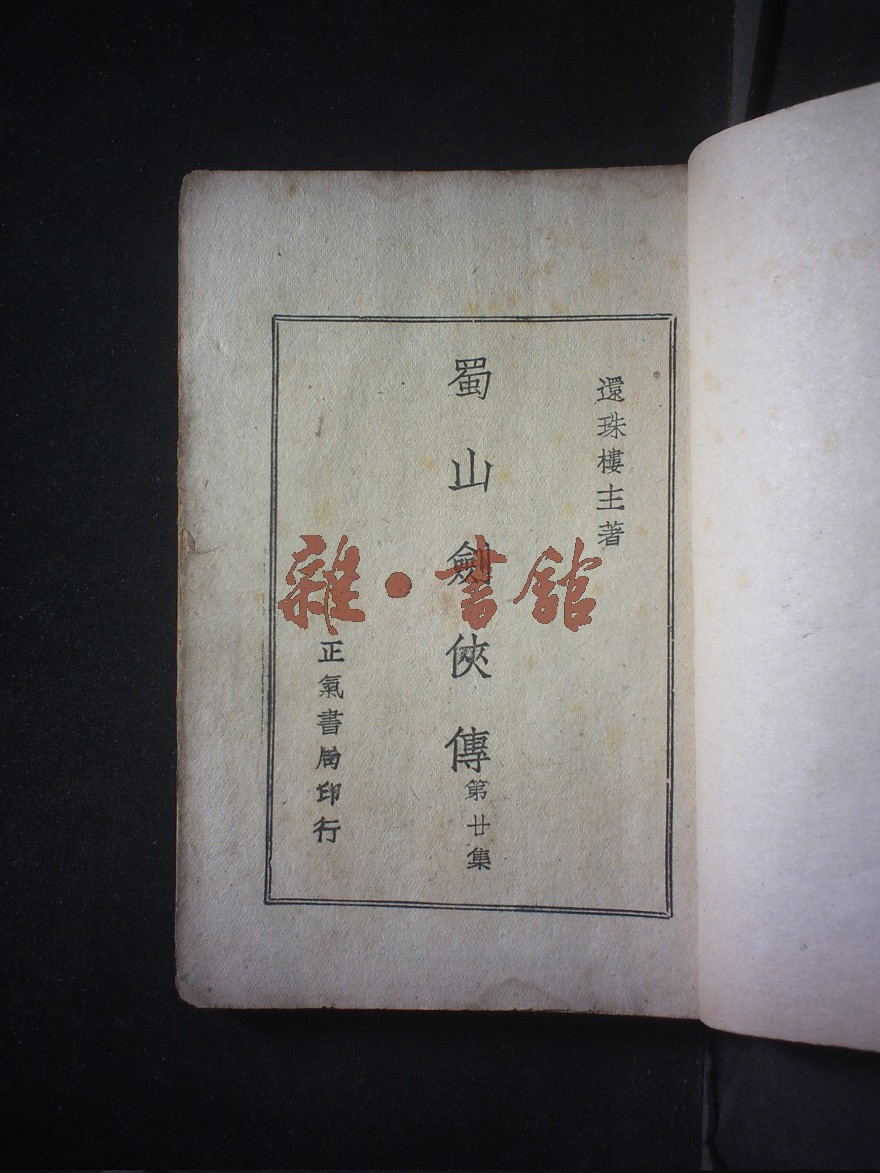 還珠樓主著
蜀山劍俠傳
第廿集
正氣書局印行
雜·書館